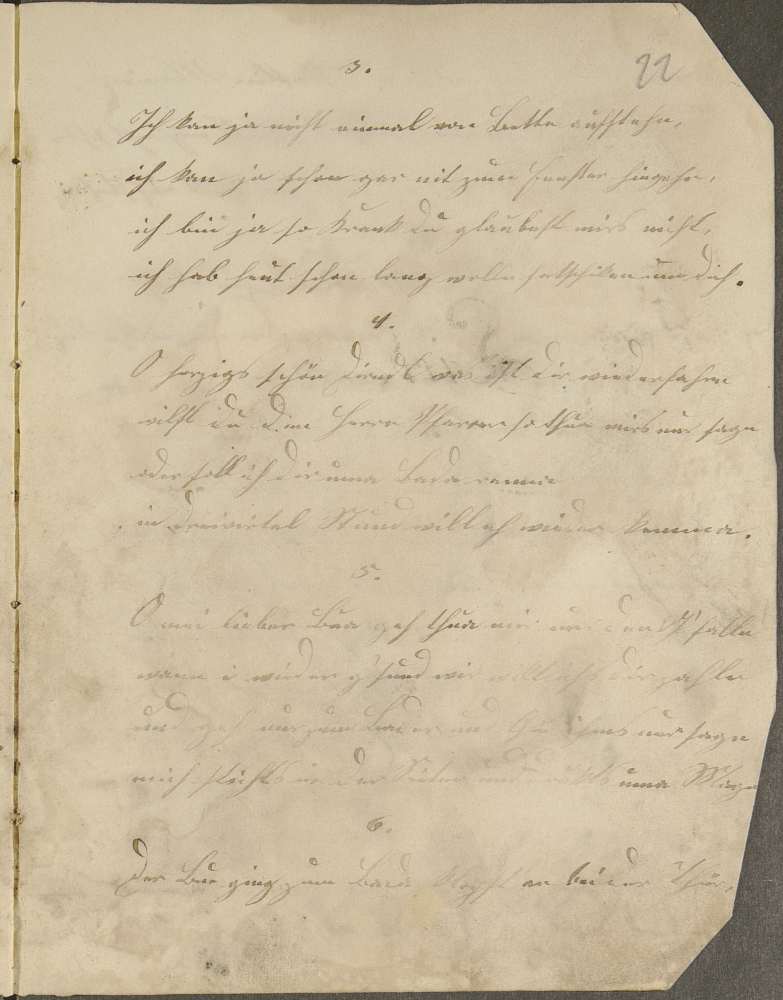 22
3.
Ich kan ja nicht einmal von Bette aufstehn,
ich kan ja schon gar nit zum Fenster hingehn,
ich bin ja so krank du glaubest mirs nicht,
ich hab heut schon lang wolln schiken um dich.
4.
O herzigs schön Dirndl was ist dir wiederfahrn
willst du den Herrn Pfarrer so thu mirs nur sagn
oder soll ich dir uma Bada renna
in dreivirtel Stund will ich wieder kemma.
5.
O mei lieber Bua geh thua mir den G'falln
wann i wieder g'sund wir will ichs dir zahln
und geh nur zum Bader und thu ihms nur sagn
mich stichts in der Seiten und uma Mag
6.
Der Bua ging zum Bada klopft an bei der Thür,